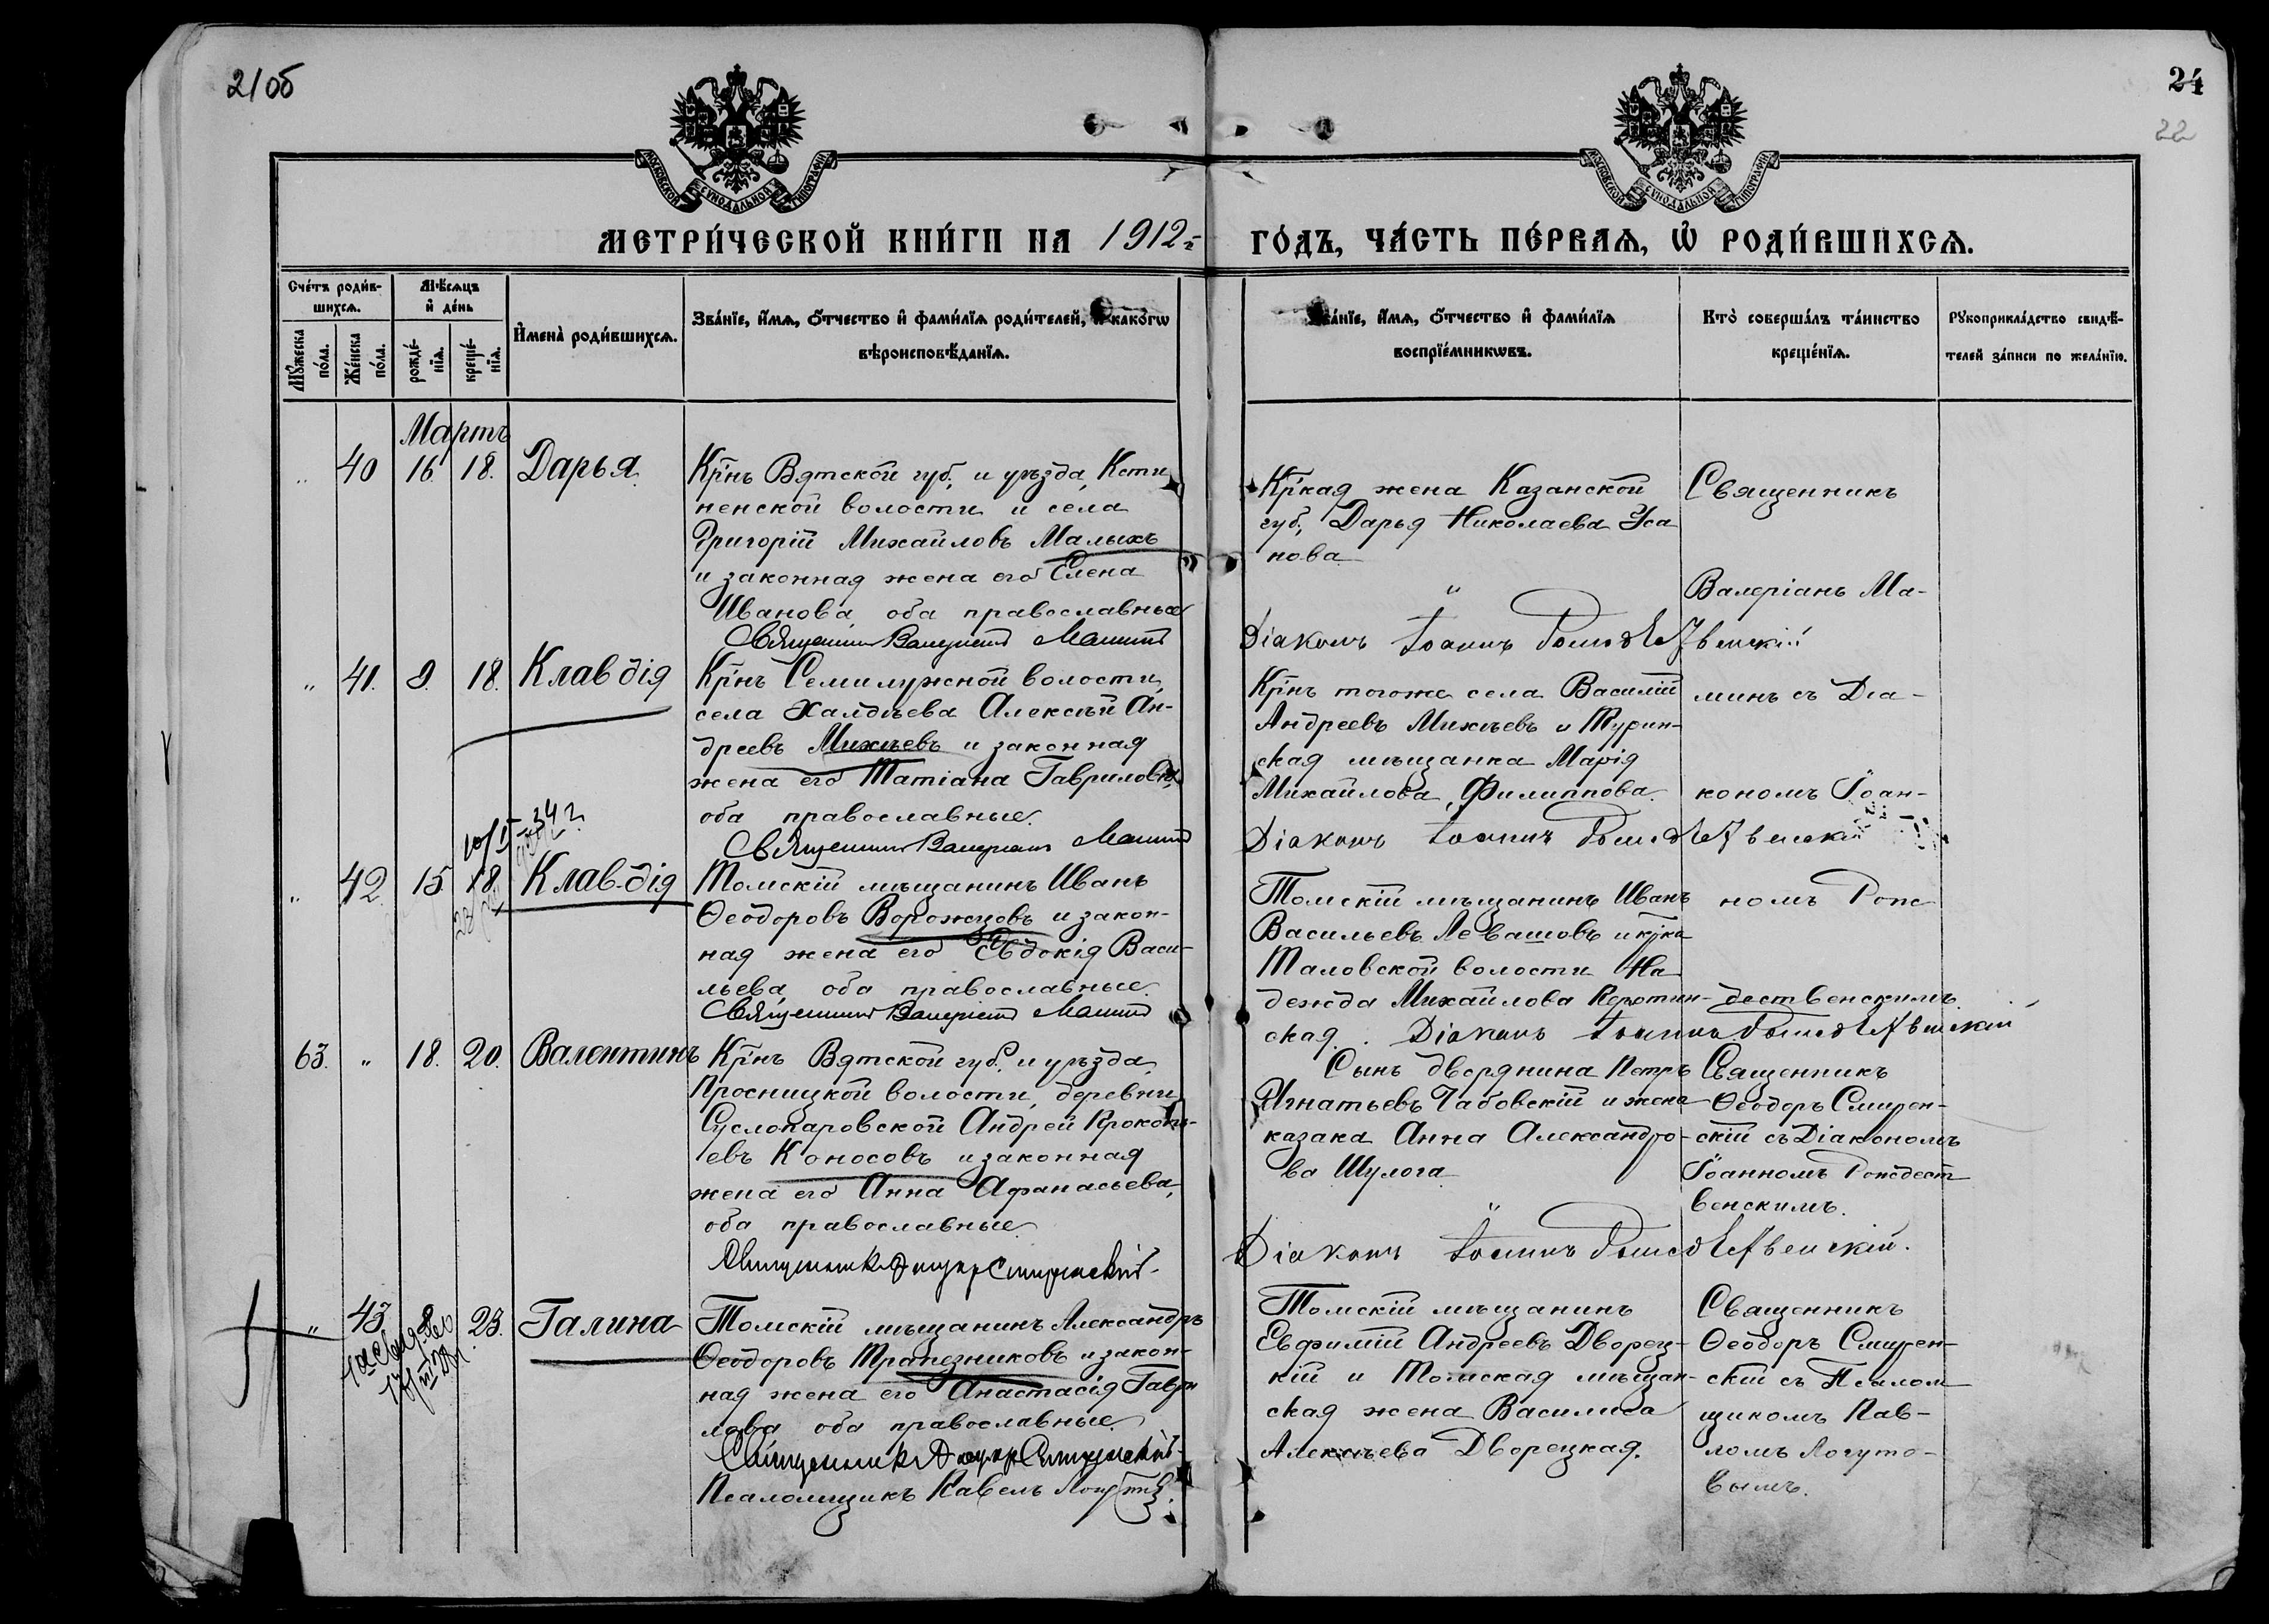 21об
24
22
МОСКОВСКОЙ СѴНОДАЛЬНОЙ ТИПОГРАФІИ
МОСКОВСКОЙ СѴНОДАЛЬНОЙ ТИПОГРАФІИ
МЕТРИ́ЧЕСКОЙ КНИ́ГИ НА 1912 ГО́ДЪ, ЧА́СТЬ ПЕ́РВАѦ, Ѡ҆ РОДИ́ВШИХСѦ.
Сче́тъ роди́в-
шихсѧ.
Мꙋ́жеска по́ла.
Же́нска по́ла.
Мѣ́сѧцъ
и҆ де́нь
рожде́-нїѧ.
креще́-нїѧ.
И҆мена̀ роди́вшихсѧ.
Зва́нїе, и҆́мѧ, ѻ҆́тчество и҆ фами́лїѧ роди́телей, и҆ како́гѡ
вѣроисповѣ́данїѧ.
Зва́нїе, и҆́мѧ, ѻ҆́тчество и҆ фами́лїѧ
воспрїе́мникѡвъ.
Кто̀ соверша́лъ та́инство
креще́нїѧ.
Рꙋкоприкла́дство свидѣ́-
телей за́писи по жела́нїю.
Мартъ
" 40 16. 18. Дарья
Кр҃нъ Вятской губ., и уѣзда, Ксти
ненской волости и села
Григорій Михайловъ Малыхъ
и законная жена его Елена
Иванова, оба православные
Священникъ Валеріанъ Маминъ
Кр҃кая жена Казанской
губ., Дарья Николаева Уса
нова
"
Діаконъ Іоаннъ Рождественскій
Священникъ
Валеріанъ Ма-
" 41. 9. 18. Клавдія
Кр҃нъ Семилужной волости,
села Халдѣева Алексѣй Ан-
дреевъ Михѣевъ и законная
жена его Татіана Гаврилова,
оба православные.
Священникъ Валеріанъ Маминъ
Кр҃нъ тогоже села Василій
Андреевъ Михѣевъ и Турин-
ская мѣщанка Марія
Михайлова Филиппова.
Діаконъ Іоаннъ Рождественскій
минъ съ Діа-
кономъ Іоан-
" 42. 15 18. Клавдія
Томскій мѣщанинъ Иванъ
Ѳеодоровъ Ворожцовъ и закон-
ная жена его Евдокія Васи-
льева, оба православные.
Священникъ Валеріанъ Маминъ
Томскій мѣщанинъ Иванъ
Васильевъ Левашовъ и кр҃ка
Таловской волости На
дежда Михайлова Коротин-
ская. Діаконъ Іоаннъ Рождественскій
номъ Рож
дественскимъ.
63. " 18. 20. Валентинъ
Кр҃нъ Вятской губ. и уѣзда,
Просницкой волости, деревни
Суслопаровской Андрей Прокопь-
евъ Коносовъ и законная
жена его Анна Афанасьева,
оба православные
Священникъ Ѳеодоръ Смиренскій
Сынъ дворянина Петръ
Игнатьевъ Чабовскій и жена
казака Анна Александро-
ва Шулога
"
Діаконъ Іоаннъ Рождественскій.
Священникъ
Ѳеодоръ Смирен-
скій съ Діакономъ
Іоанномъ Рождест
венскимъ.
" 43. 8. 23. Галина
Томскій мѣщанинъ Александръ
Ѳеодоровъ Трапезниковъ и закон-
ная жена его Анастасія Гаври
лова оба православные.
Священникъ Ѳеодоръ Смиренскій
Псаломщикъ Павелъ Логутовъ.
Томскій мѣщанинъ
Евфимій Андреевъ Дворец-
кій и Томская мѣщан-
ская жена Василиса
Алексѣева Дворецкая.
Священникъ
Ѳеодоръ Смирен-
скій съ Псалом
щикомъ Пав-
ломъ Логуто-
вымъ.